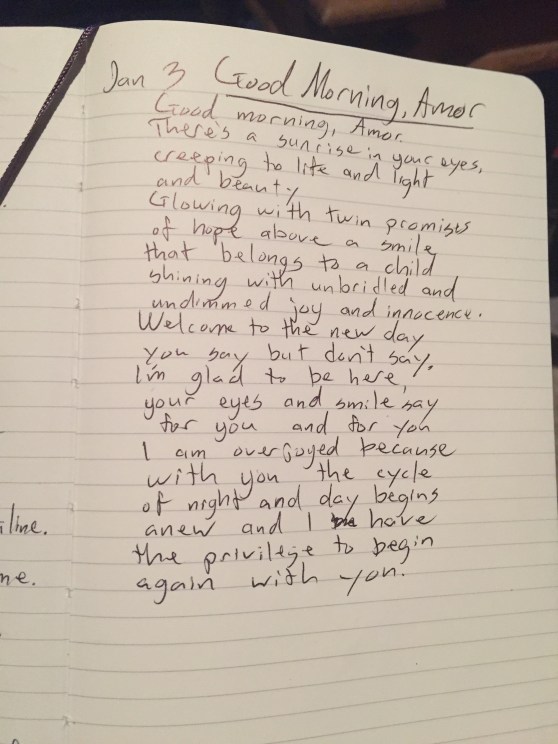 Jan 3 Good Morning, Amor
Good morning, Amor.
There's a sunrise in your eyes,
creeping to life and light
and beauty
Glowing with twin promises
of hope above a smile
that belongs to a child
shining with unbridled and
undimmed joy and innocence.
Welcome to the new day
you say but don't say.
I'm glad to be here,
your eyes and smile say
for you and for you
I am overjoyed because
with you the cycle
of night and day begins
anew and I have
the privilege to begin
again with you.
line.
ne.